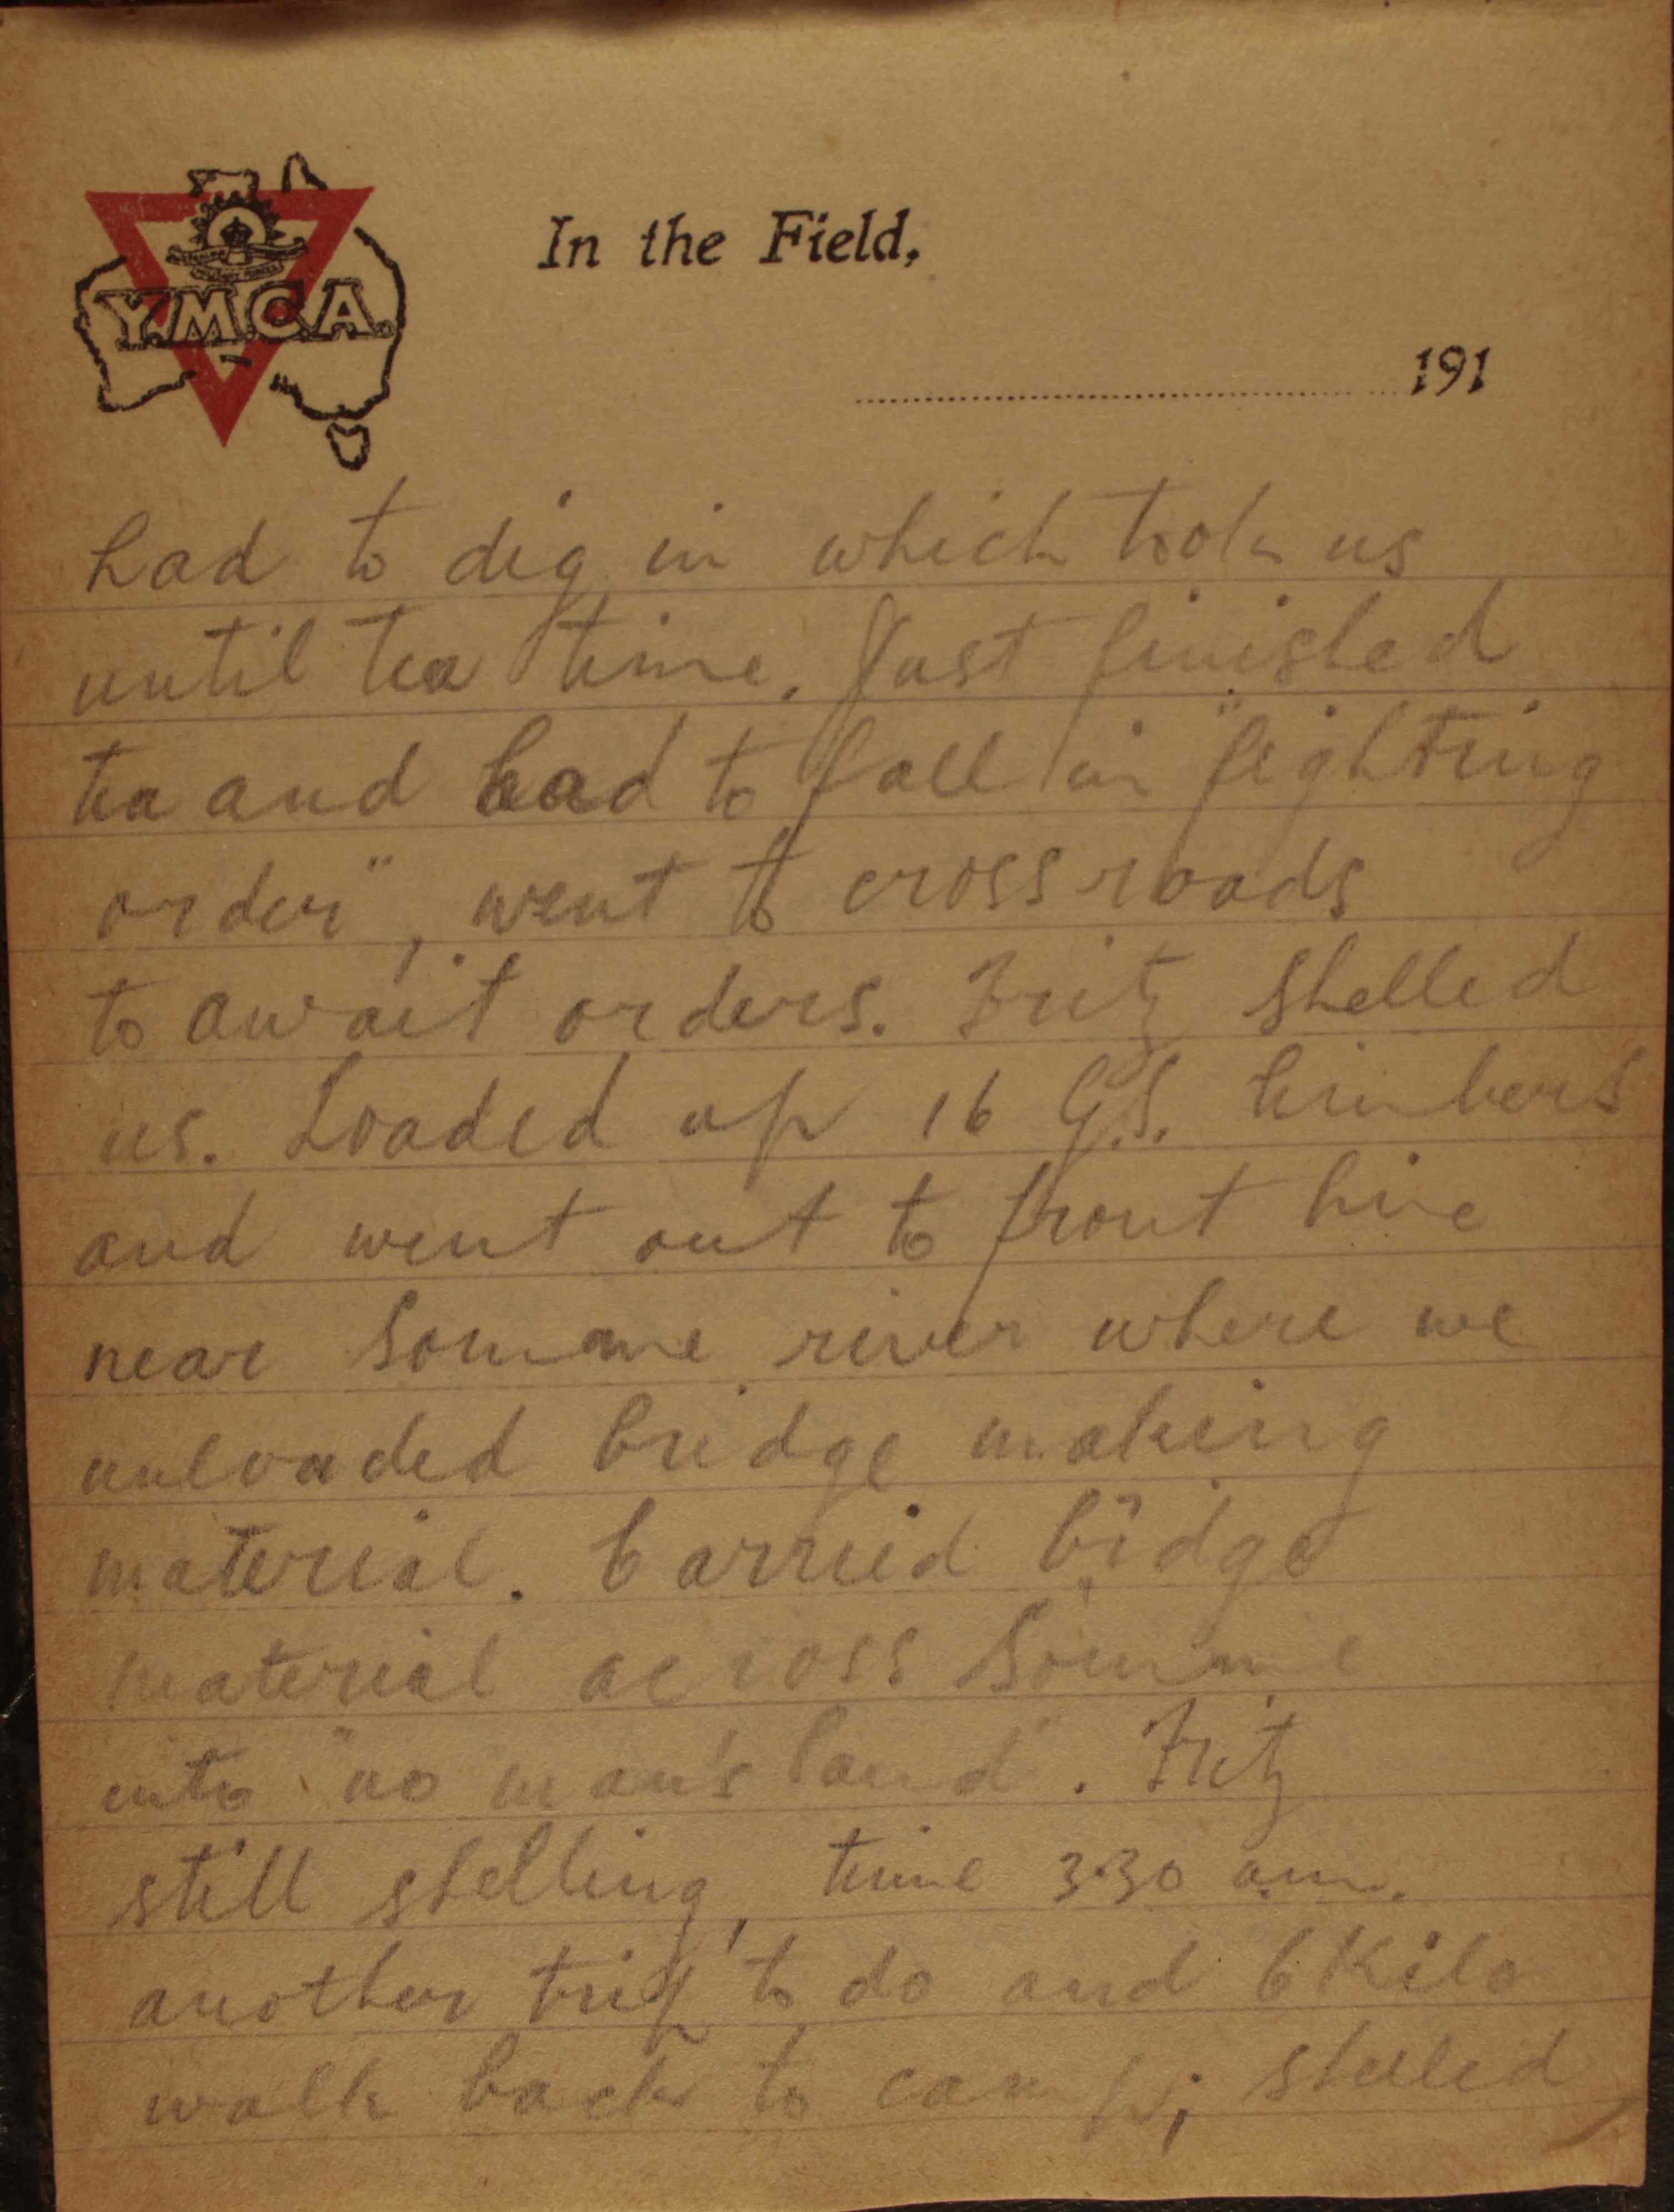 In the Field,
Y.M.C.A.
191
had to dig in which took us
until tea time. Just finished
tea and had to fall in "fighting
order", went to cross roads
to await orders. Fritz shelled
us. Loaded up 16 G.S. limbers
and went out to front line
near Somme river where we
unloaded bridge making
material. Carried bridge
material across Somme
into "no man's land". Fritz
still shelling, time 3.30 am.
another trip to do and 6 Kilo
walk back to camp; shelled